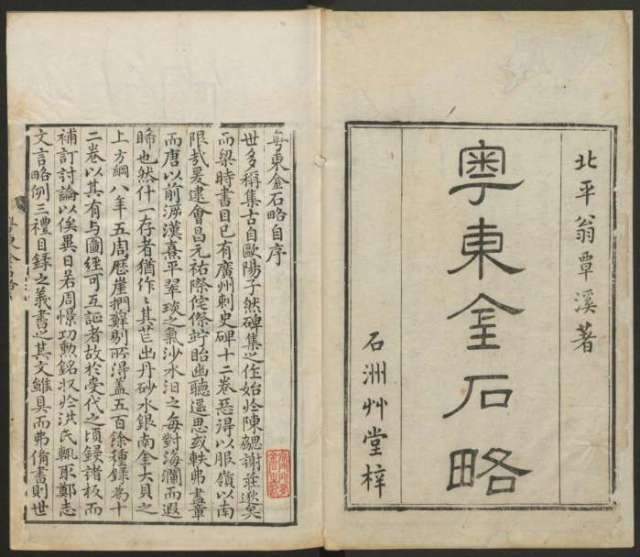 北平翁覃溪著
粵東金石略
石洲艸堂梓
粵東金石略自序
世多稱集古自歐陽子然碑集之作始於陳勰謝莊逖矣
而梁時書目已有廣州刺史碑十二卷惡得以服嶺以南
限哉爰逮會昌元祐際侘傺竚眙幽聽遐思或軼弗盡章
而唐以前溯漢熹平翠琰之氣沙水汩之每對海瀾而遐
睎也然什一存者猶作〻其芒出丹砂水銀南金大貝之
上方綱八年五周歷崖捫蘚剔所得蓋五百餘種錄為十
二卷以其有与圖經可互証者故於受代之頃録諸板而
補訂討論以俟異日若周憬功勲銘収於洪氏輒取鄭志
文言略例三禮目録之義書之其文雖具而弗備書則世